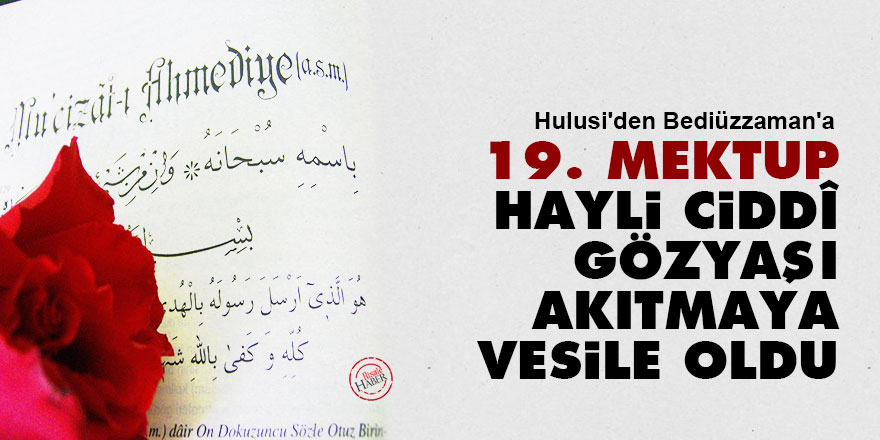 Mu'cizât-ı Ahmediye (a.s.m.)
بِاسْمِهِ سُبْحَانَهُ * وَاِنْ مِنْ
هُوَ الَّذِٓى اَرْسَلَ رَسُولَهُ بِالْهُدٰى
كُلِّهِ وَ كَفٰى بِاللّٰهِ
m.) dâir On Dokuzuncu Sözle Otuz Birin-
Risale
HABER
Hulusi'den Bediüzzaman'a
19. MEKTUP
HAYLi CiDDÎ
GÖZYAŞI
AKITMAYA
VESiLE OLDU